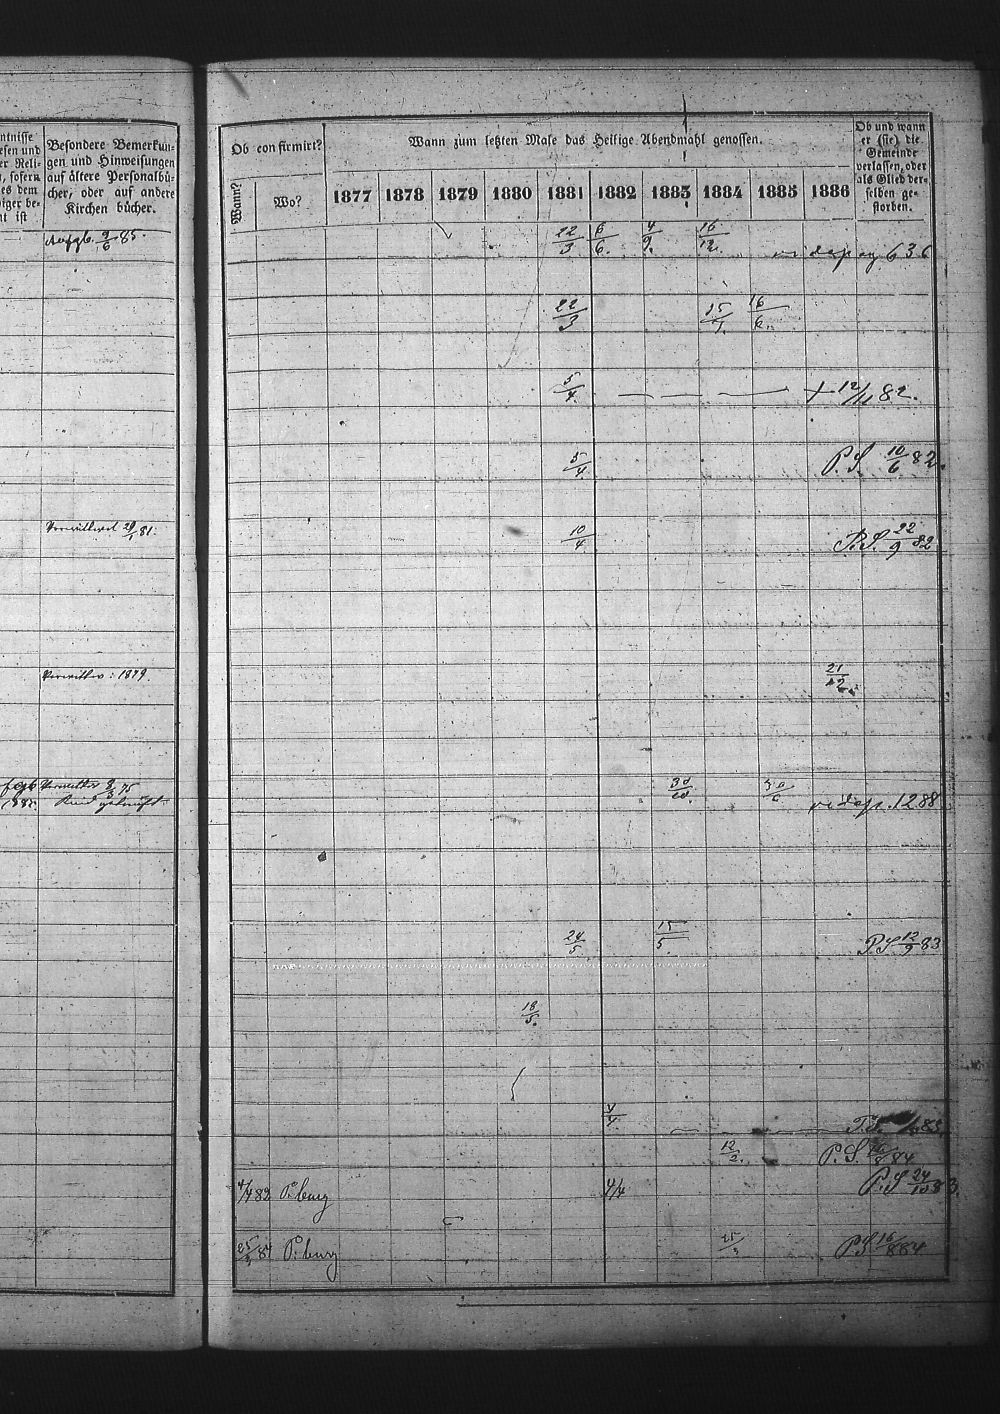 ntnisse
esen und
er Reli-
, sofern
es dem
iger be-
nt ist
Besondere Bemerkun-
gen und Hinweisungen
auf ältere Personalbü-
cher, oder auf andere
Kirchen bücher.
Ob confirmirt?
Wann?
Wo?
Wann zum letzten Male das Heilige Abendmahl genossen.
1877 1878 1879 1880 1881 1882 1883 1884 1885 1886
Ob und wann
er (sie) die
Gemeinde
verlassen, oder
als Glied der-
selben ge-
storben.
Aufgb. 9/6 85.
22/3 6/6. 4/9. 16/12. 636
22/3 16/6.
5/4. + 12/11 82.
5/4. P. S. 10/6 82.
10/4 P. S. 22/9 82
Verwittw: 1879.
21/12
1288
24/5. 15/5. P. S 12/9 83
18/5.
4/4. 83.
12/2. P. S. 84
4/4 82 P.burg 4/4 P. S 24/10 83.
25/3 84 P.burg 25/3 P S 16/8 84